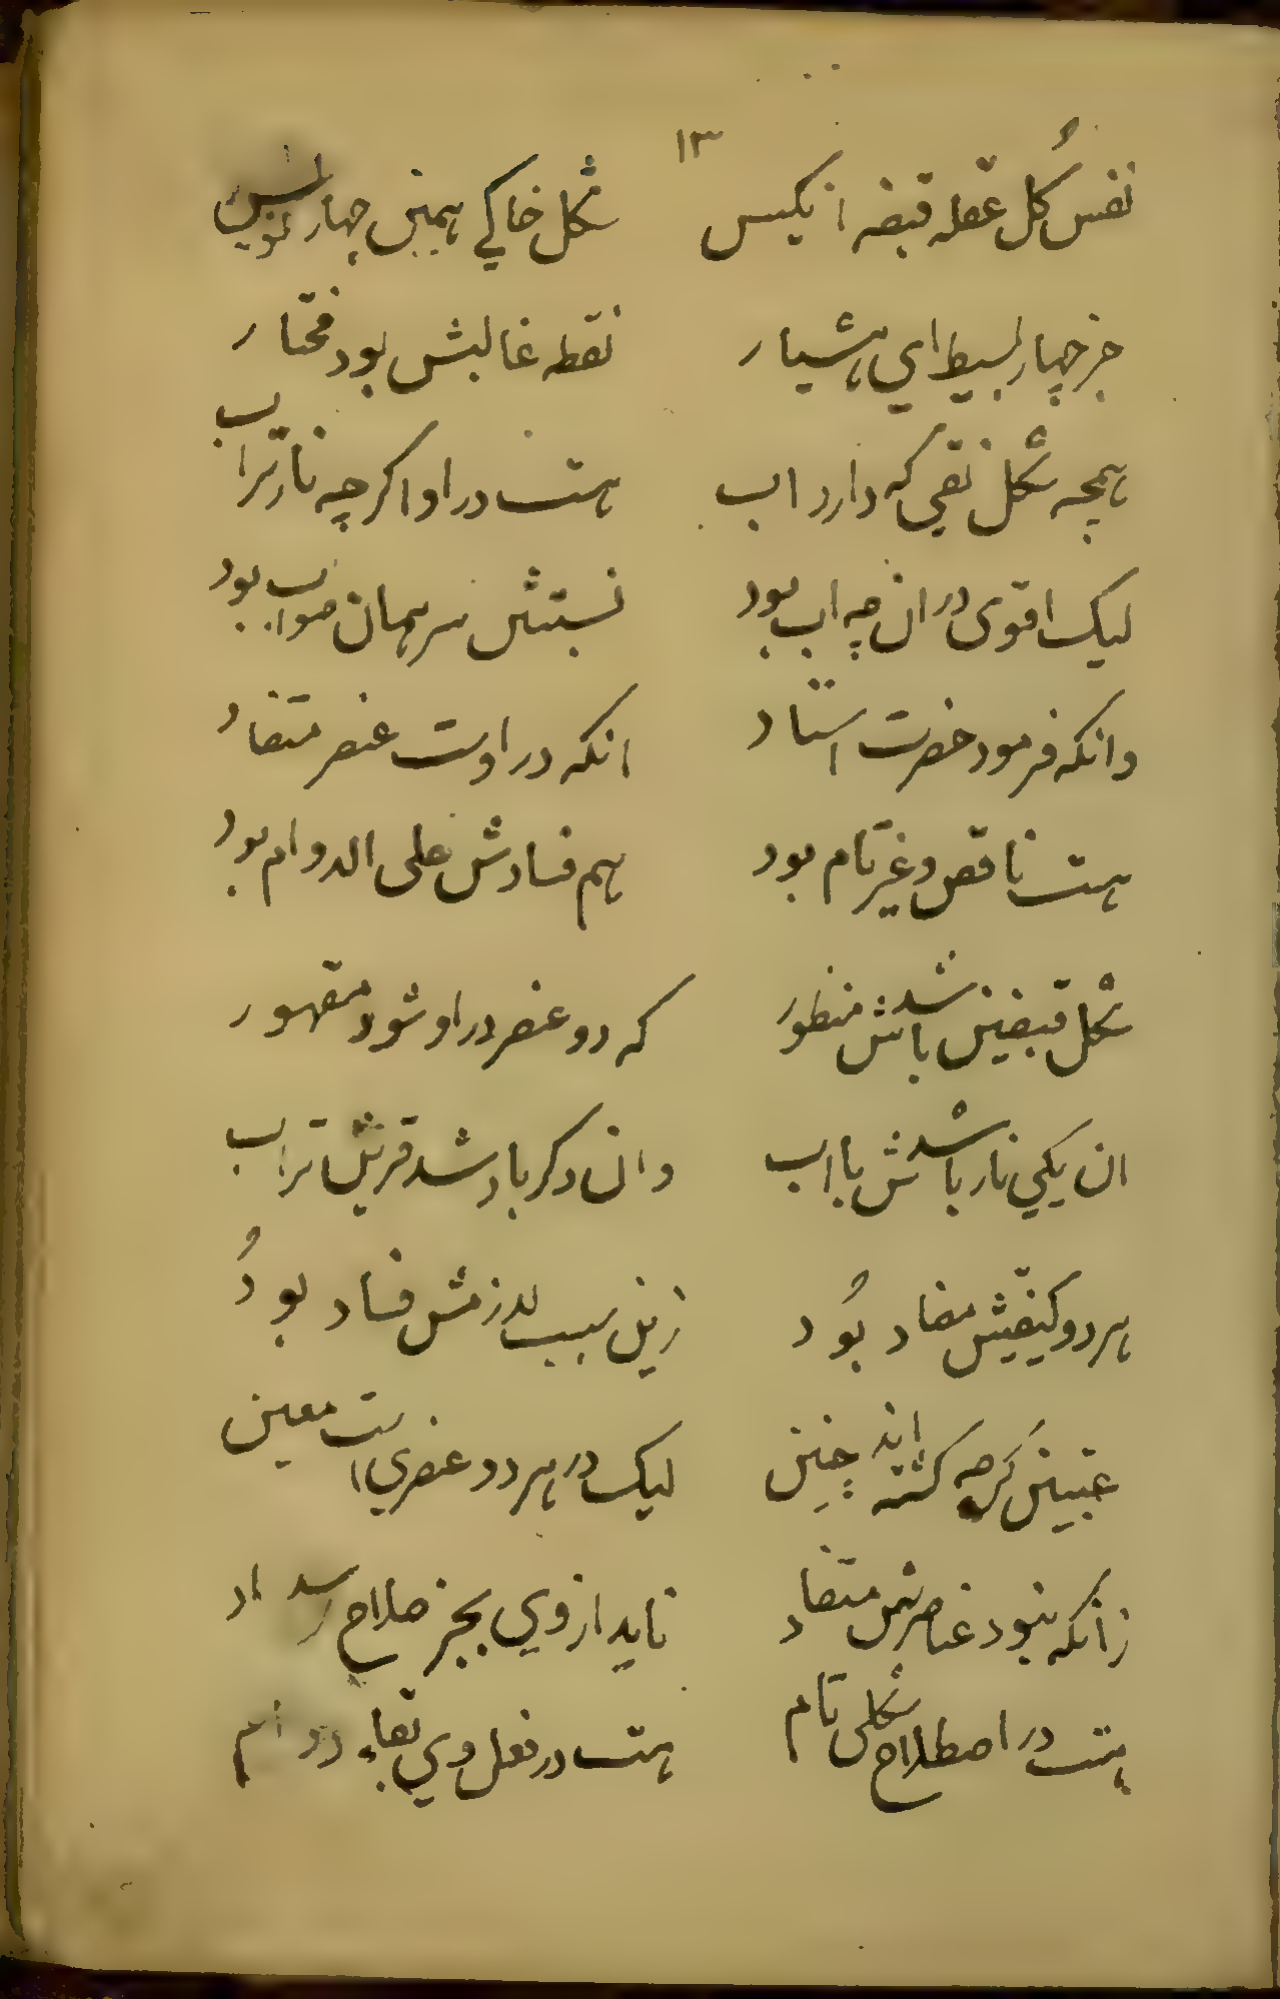 ۱۳
نقش کل عقله قبضه انکیس شکل خاکے همین چهار
جز چهار بسیط اي هشیار نقطه غالبش بود مختار
همچه شکل نقي که دارد اب هست در او اکرچه نار تراب
لیک اقوی دران چه اب بود نسبتش سر بهمان صواب بود
وانکه فرمود حضرت استاد انکه در اوست عنصر متضاد
هست ناقص و غیر تام بود هم فسادش علی الدوام بود
شکل قبضین باشدش منظور که دو عنصر در او شود مقهور
ان یکي نار باشدش با اب وان دکر باد شد قرینش تراب
هر دو کیفیتش مضاد بُود زین سبب لازمش فساد بودُ
عتبین کرچه کشته اند چنین لیک در هر دو عنصري است معین
زانکه نبود عناصرش متضاد ناید از وي بجز صلاح سداد
هست در اصطلاح شکلی تام هست در فعل وي بقاء دوام